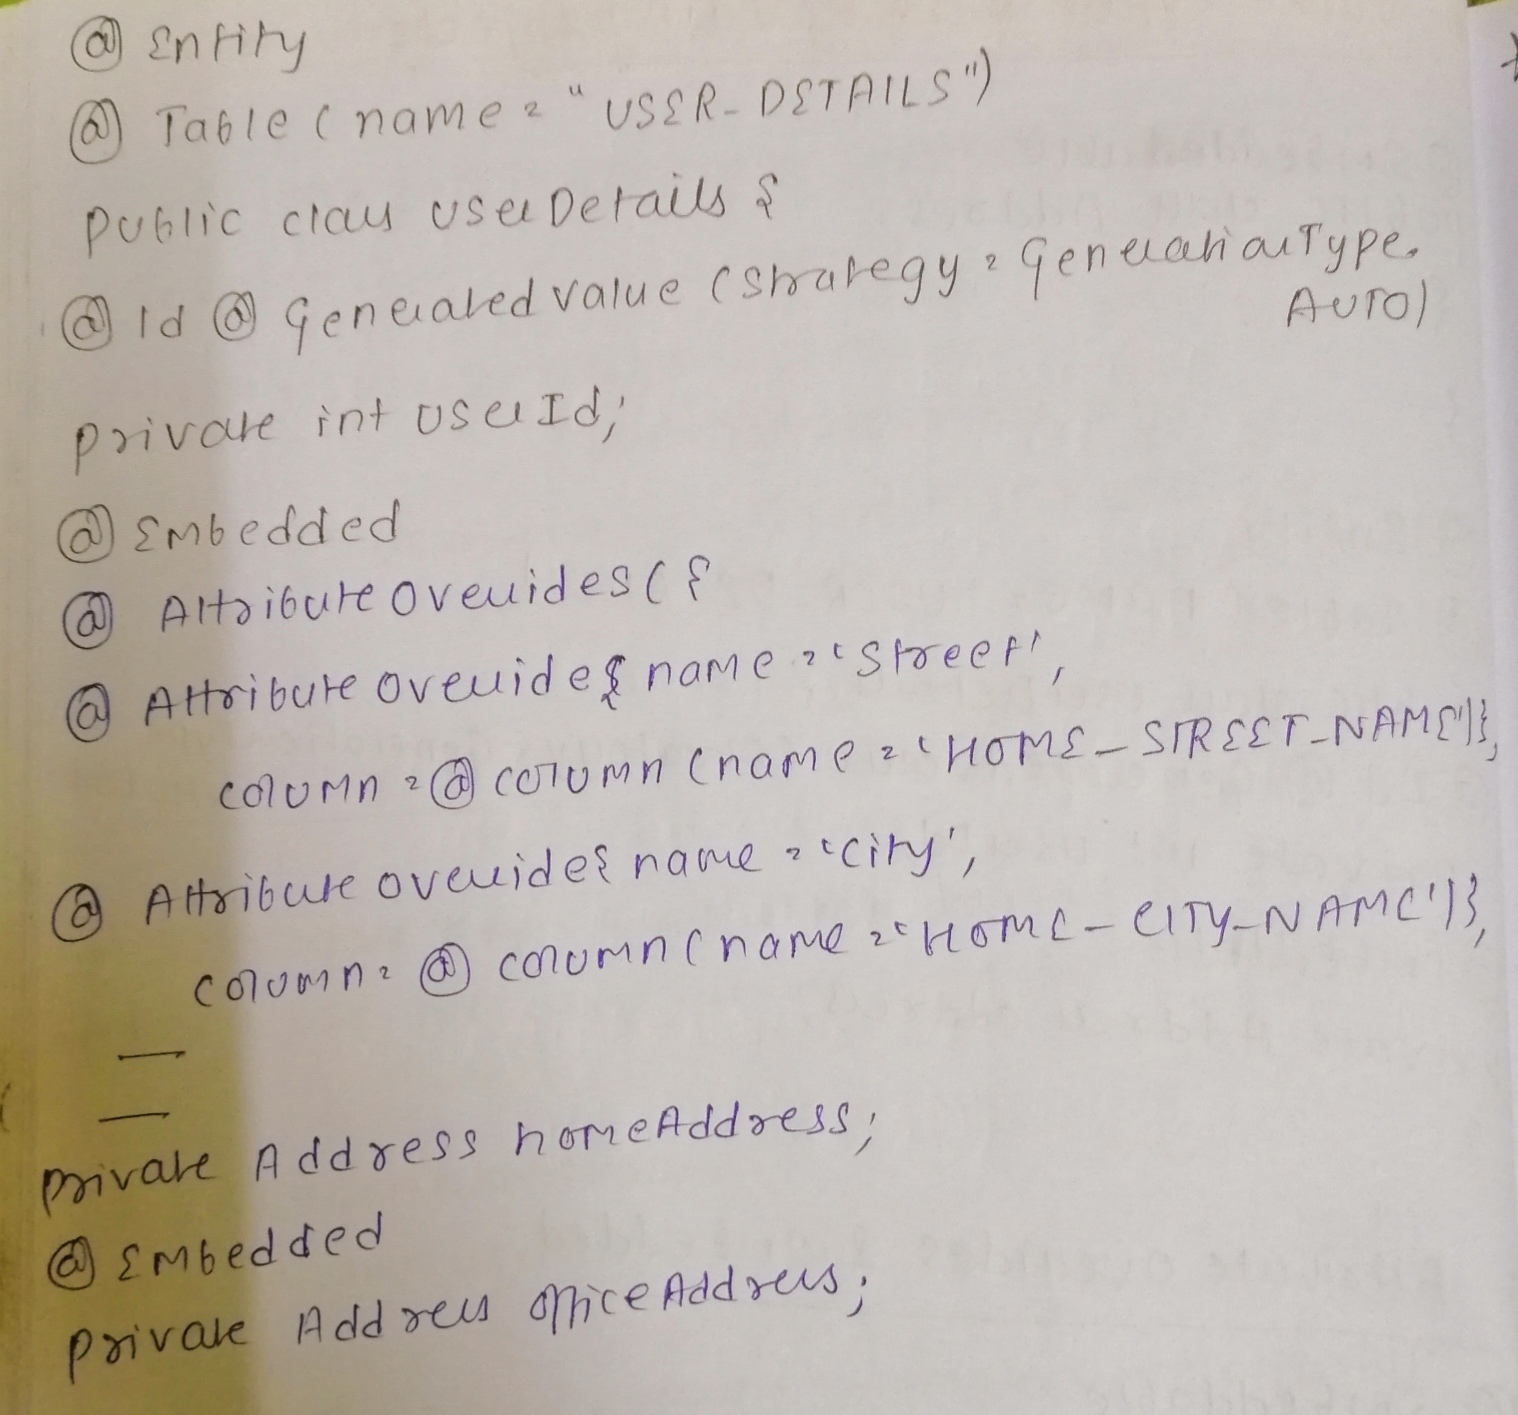 @ Entity
@ Table (name = "USER_DETAILS")
public class UserDetails {
@ Id @ Generated value (strategy = GenerationType.
AUTO)
private int userId;
@ Embedded
@ Attribute Overrides ({
@ Attribute Override { name = 'street',
column = @ column (name = 'HOME_STREET_NAME')},
@ Attribute override { name = 'city',
column = @ column (name = 'HOME_CITY_NAME')},
—
—
private Address homeAddress;
@ Embedded
private Address officeAddress;